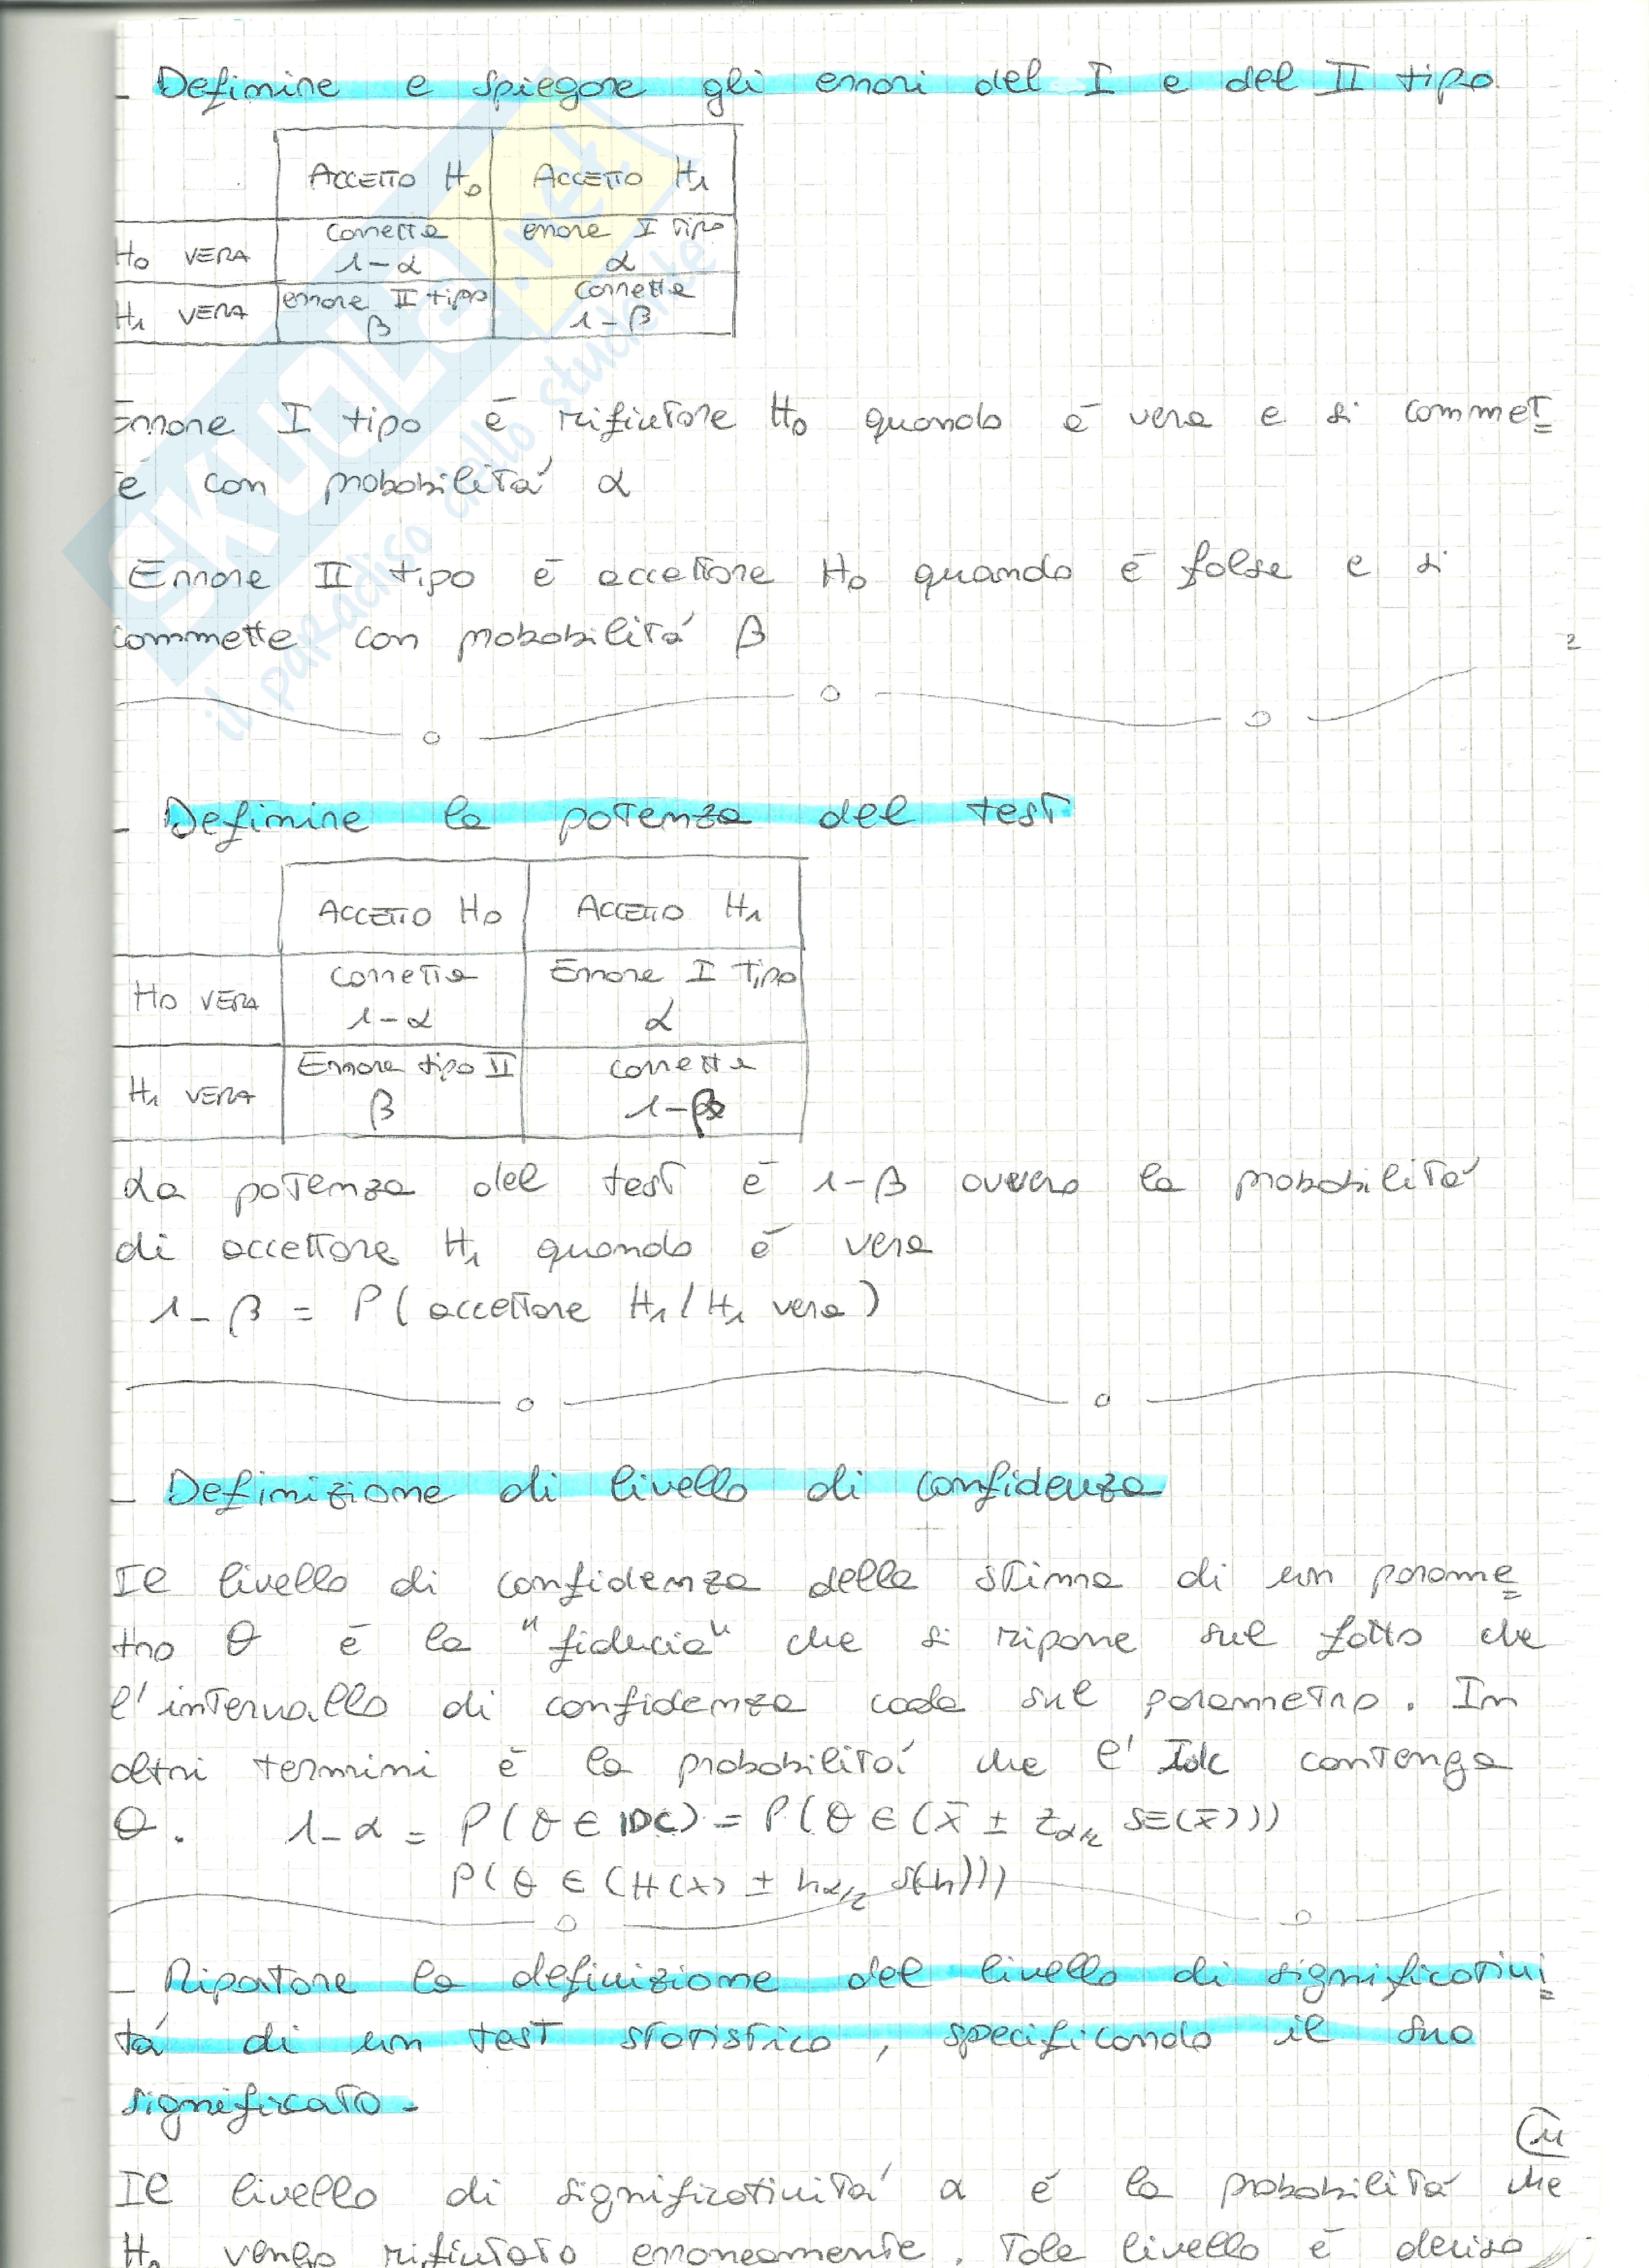 - Definire e spiegare gli errori del I e del II tipo.
ACCETTO H0 ACCETTO H1
H0 VERA corretta 1-α errore I tipo α
H1 VERA errore II tipo β corretta 1-β
Errore I tipo é rifiutare H0 quando é vera e si commet=
te con probabilitá α
Errore II tipo é accettare H0 quando é falsa e si
commette con probabilitá β
- Definire la potenza del test
ACCETTO H0 ACCETTO H1
H0 VERA corretta 1-α Errore I tipo α
H1 VERA Errore tipo II β corretta 1-β
La potenza del test é 1-β ovvero la probabilitá
di accettare H1 quando é vera
1-β = P(accettare H1/H1 vera)
- Definizione di livello di confidenza
Il livello di confidenza della stima di un parame=
tro θ é la "fiducia" che si ripone sul fatto che
l'intervallo di confidenza cada sul parametro. In
altri termini é la probabilitá che l'Idc contenga
θ. 1-α = P(θ ∈ IDC) = P(θ ∈ (x̄ ± zα/2 SE(x̄)))
P(θ ∈ (H(x) ± hα/2 S(h)))
- Riportare la definizione del livello di significativi=
tá di un test statistico, specificando il suo
significato.
Il livello di significativitá α é la probabilitá che
H0 venga rifiutata erroneamente. Tale livello é deciso
SKUOLA.net
il paradiso dello studente